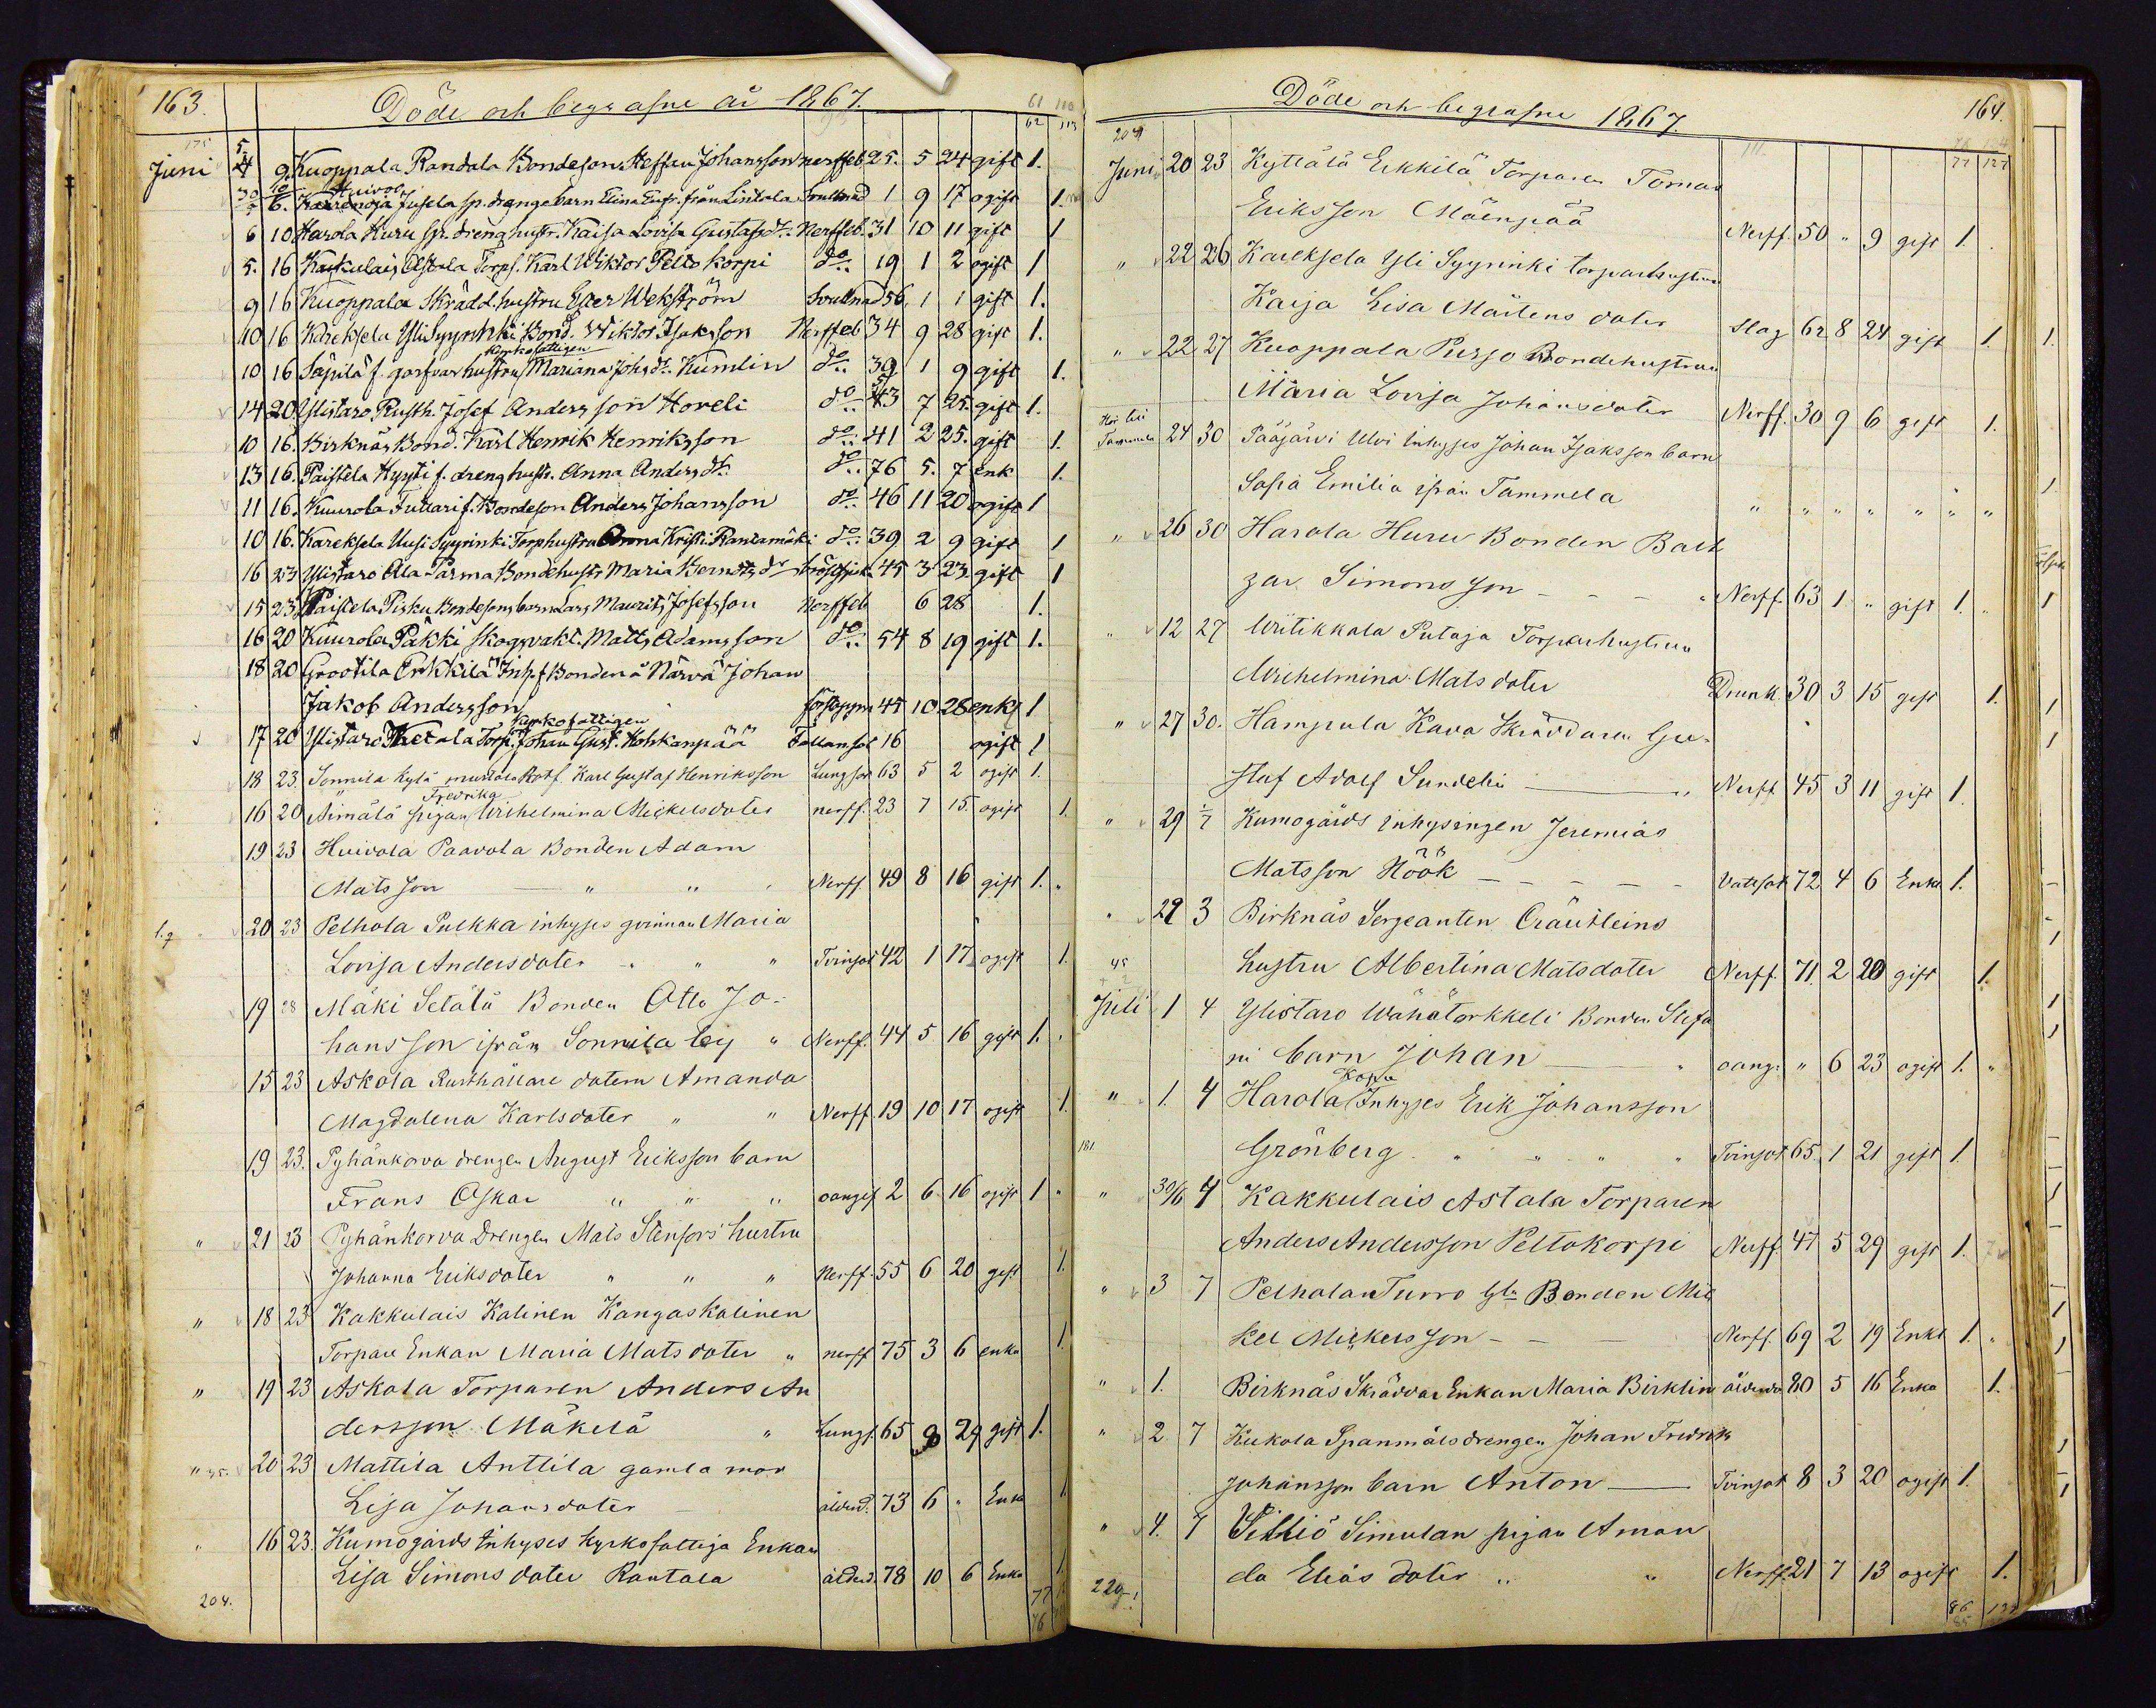 163. Döde och begrafne år 1867.
61 110
62 113
175
Juni 5. 4 9. Kuoppala Randala Bondeson Steffan Johansson nerffeb 25. 5 24 gift 1.
30/5 10/6. Huivola Jusela sp. drengs barn Elina Eufr. från Lintala Svullnad 1 9 17 ogift 1.
6 10 Harola Huru Sp. dreng hustr. Kaisa Lovisa Gustafsdr. Nerffeb. 31 10 11 gift 1
5. 16 Kakkulais Astala Torps. Karl Wiktor Peltokorpi do.. 19 1 2 ogift 1
9 16 Kuoppala Skrädd. hustru Ester Wekström Svullnad 56 1 1 gift 1.
10 16 Kareksela Yli Syyrinki Bond. Wiktor Isaksson Nerffeb 34 9 28 gift 1.
kyrkofattigen
10 16 Säpilä f. garfvar hustru Mariana Johsdr. Kumlin do.. 39 1 9 gift 1.
14 20 Ylistaro Rusth. Josef Andersson Hoveli do.. 53 7 25. gift 1.
10 16. Birknäs Bond. Karl Henrik Henriksson do.. 41 2 25. gift 1.
13 16. Paistela Kyysti f. dreng hustr. Anna Andersdr. do.. 76 5. 7 enk 1.
11 16. Kuurola Tuttari f. Bondeson Anders Johansson do.. 46 11 20 ogift 1
10 16. Kareksela Uusi Syyrinki Torphustru Anna Kristi. Rantamäki do.. 39 2 9 gift 1
16 23 Ylistaro Ala-Parma Bondehustr Maria Berndtsdr bröstsjuk. 45 3 23 gift 1
15 23 Paistela Pisku Bondesons barn Lars Maurits Josefsson Nerffeb 6 28 1.
16 20 Kuurola Päkki skogvakt. Matts Adamsson do.. 54 8 19 gift 1.
18 20 Grootila Erkkilä Inh. f Bonden å Närvä Johan
Jakob Andersson 45 10 28 enkl 1
kyrkofattigen
17 20 Ylistaro Ketala Torp. Johan Gust. Kohkanpää Fallansot 16 ogift 1
18 23. Sonnila kylä Rotf. Karl Gustaf Henriksson Lungsot 63 5 2 ogift 1.
Fredrika
16 20 Äimälä pigan Wilhelmina Mickelsdoter nerff. 23 7 15. ogift 1.
19 23 Huivola Paavola Bonden Adam
Matsson " " Nerff 49 8 16 gift 1.
20 23 Pelhola Pulkka inhyses qvinnan Maria
Lovisa Andersdoter " " Tvinsot 42 1 17 ogift 1.
19 28 Mäki Setälä Bonden Otto Jo-
hansson ifrån Sonnila by " Nerff. 44 5 16 gift 1.
15 23 Askola Rusthållare dotern Amanda
Magdalena Karlsdoter " " Nerff 19 10 17 ogift 1.
19 23. Pyhänkorva drengen August Eriksson barn
Frans Oskar " " " oangif 2 6 16 ogift 1
" 21 23 Pyhänkorva Drengen Mats Stenfors hustru
Johanna Eriksdoter " " " Nerff. 55 6 20 gift 1.
" 18 23 Kakkulais Kalinen Kangaskalinen
Torpare Enkan Maria Matsdoter " nerff 75 3 6 enka 1.
" 19 23 Askola Torparen Anders An
dersson Mäkelä " Lungs. 65 8 29 gift 1.
20 23 Mattila Anttila gamla mor
Lisa Johansdoter ålderd. 73 6 " Enka 1.
16 23. Kumogårds Inhyses kyrkofattiga Enkan
Lisa Simonsdoter Rantala ålderd. 78 10 6 Enka 1.
204. 77
76
Döde och begrafne 1867. 164.
204
77 127
Juni 20 23 Kyttälä Erkkilä Torparen Tomas
Eriksson Mäenpää Nerff. 50 " 9 gift 1.
" 22 26 Kareksela Yli Syyrinki torparhustrun
Kaija Lisa Mårtensdoter Slag 62 8 24 gift 1
" 22 27 Kuoppala Purjo Bondehustrun
Maria Lovisa Johansdoter Nerff. 30 9 6 gift 1.
Hör till
Tammela 24 30 Pääjärvi Ulvi Inhyses Johan Isaksson barn
Sofia Emilia ifrån Tammela " " " " " " "
" 26 30 Harola Huru Bonden Balt
zar Simonsson Nerff. 63 1 " gift 1.
" 12 27 Wiitikkala Putaja Torparhustrun
Wilhelmina Matsdoter Drunk. 30 3 15 gift 1.
" 27 30. Hampula Kava Skräddaren Gu-
staf Adolf Sundelin Nerff. 45 3 11 gift 1.
" 29 1/7 Kumogårds inhysingen Jeremias
Matsson Höök Vattsot 72 4 6 Enkl 1.
" 29 3 Birknäs Sergeanten Cräutleins
hustru Albertina Matsdoter Nerff. 71. 2 20 gift 1.
45
Juli 1 4 Ylistaro Wähätorkkeli Bonden Stefa
ni barn Johan oang. " 6 23 ogift 1.
Kopu
" 1. 4 Harola Inhyses Erik Johansson
181. Grönberg " " " Tvinsot 65 1 21 gift 1.
" 30/6 4 Kakkulais Astala Torparen
Anders Andersson Peltokorpi Nerff. 47 5 29 gift 1.
" 3 7 Pelholan Turro Gla Bonden Mic
kel Mickelsson Nerff. 69 2 19 Enkl 1.
" 1. Birknäs Skräddar Enkan Maria Birklin ålderdo 80 5 16 Enka 1.
" 2 7 Kukola Spanmålsdrengen Johan Fredrik
Johansson barn Anton Tvinsot 8 3 20 ogift 1.
" 4. 7 Villiö Simulan pigan Aman
da Eliasdoter " " Nerff. 21 7 13 ogift 1.
229. 86
85